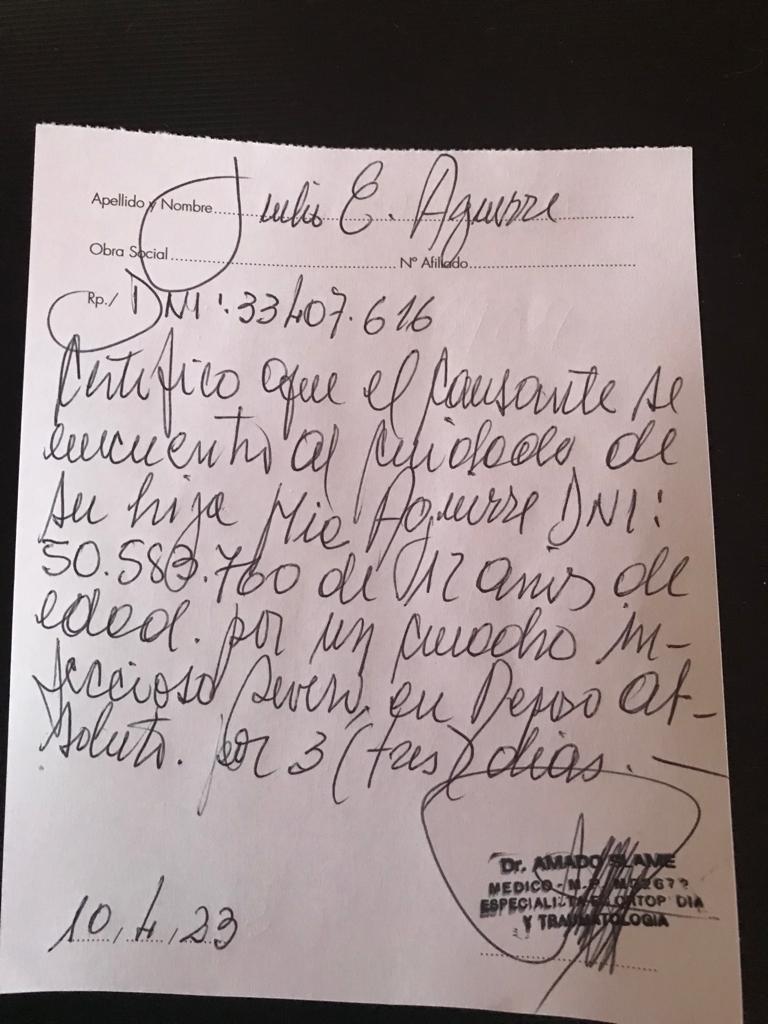 Apellido y Nombre Julio E. Aguirre
Obra Social Nº Afiliado
Rp./ DNI: 33407.616
Certifico que el causante se
encuentra al cuidado de
su hija Mia Aguirre DNI:
50.583.760 de 12 años de
edad. por un cuadro in-
feccioso severo, en Reposo ab-
soluto. por 3 (tres) dias.
Dr. AMADO SLAME
MEDICO - M.P.
Y TRAUMATOLOGIA
10,4,23